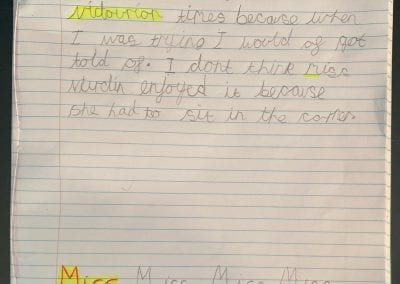 Vidourion times because when
I was trying I would of got
told of. I dont think miss
enjoyed it because
she had to sit in the corner
Miss Miss Miss Miss